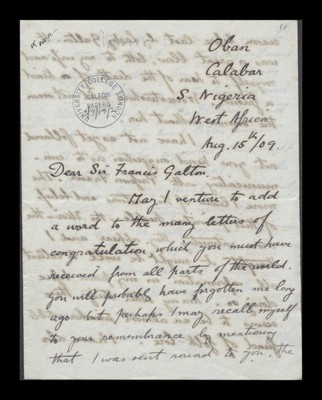 Oban
Calabar
S. Nigeria
West Africa
Aug. 15th/09.
UNIVERSITY COLLEGE LONDON
GALTON
PAPERS
Dear Sir Francis Galton.
May I venture to add
a word to the many letters of
congratulation, which you must have
received from all parts of the world.
You will probably have forgotten me long
ago but perhaps I may recall myself
to your remembrance by mentioning
that I was sent round to you. the